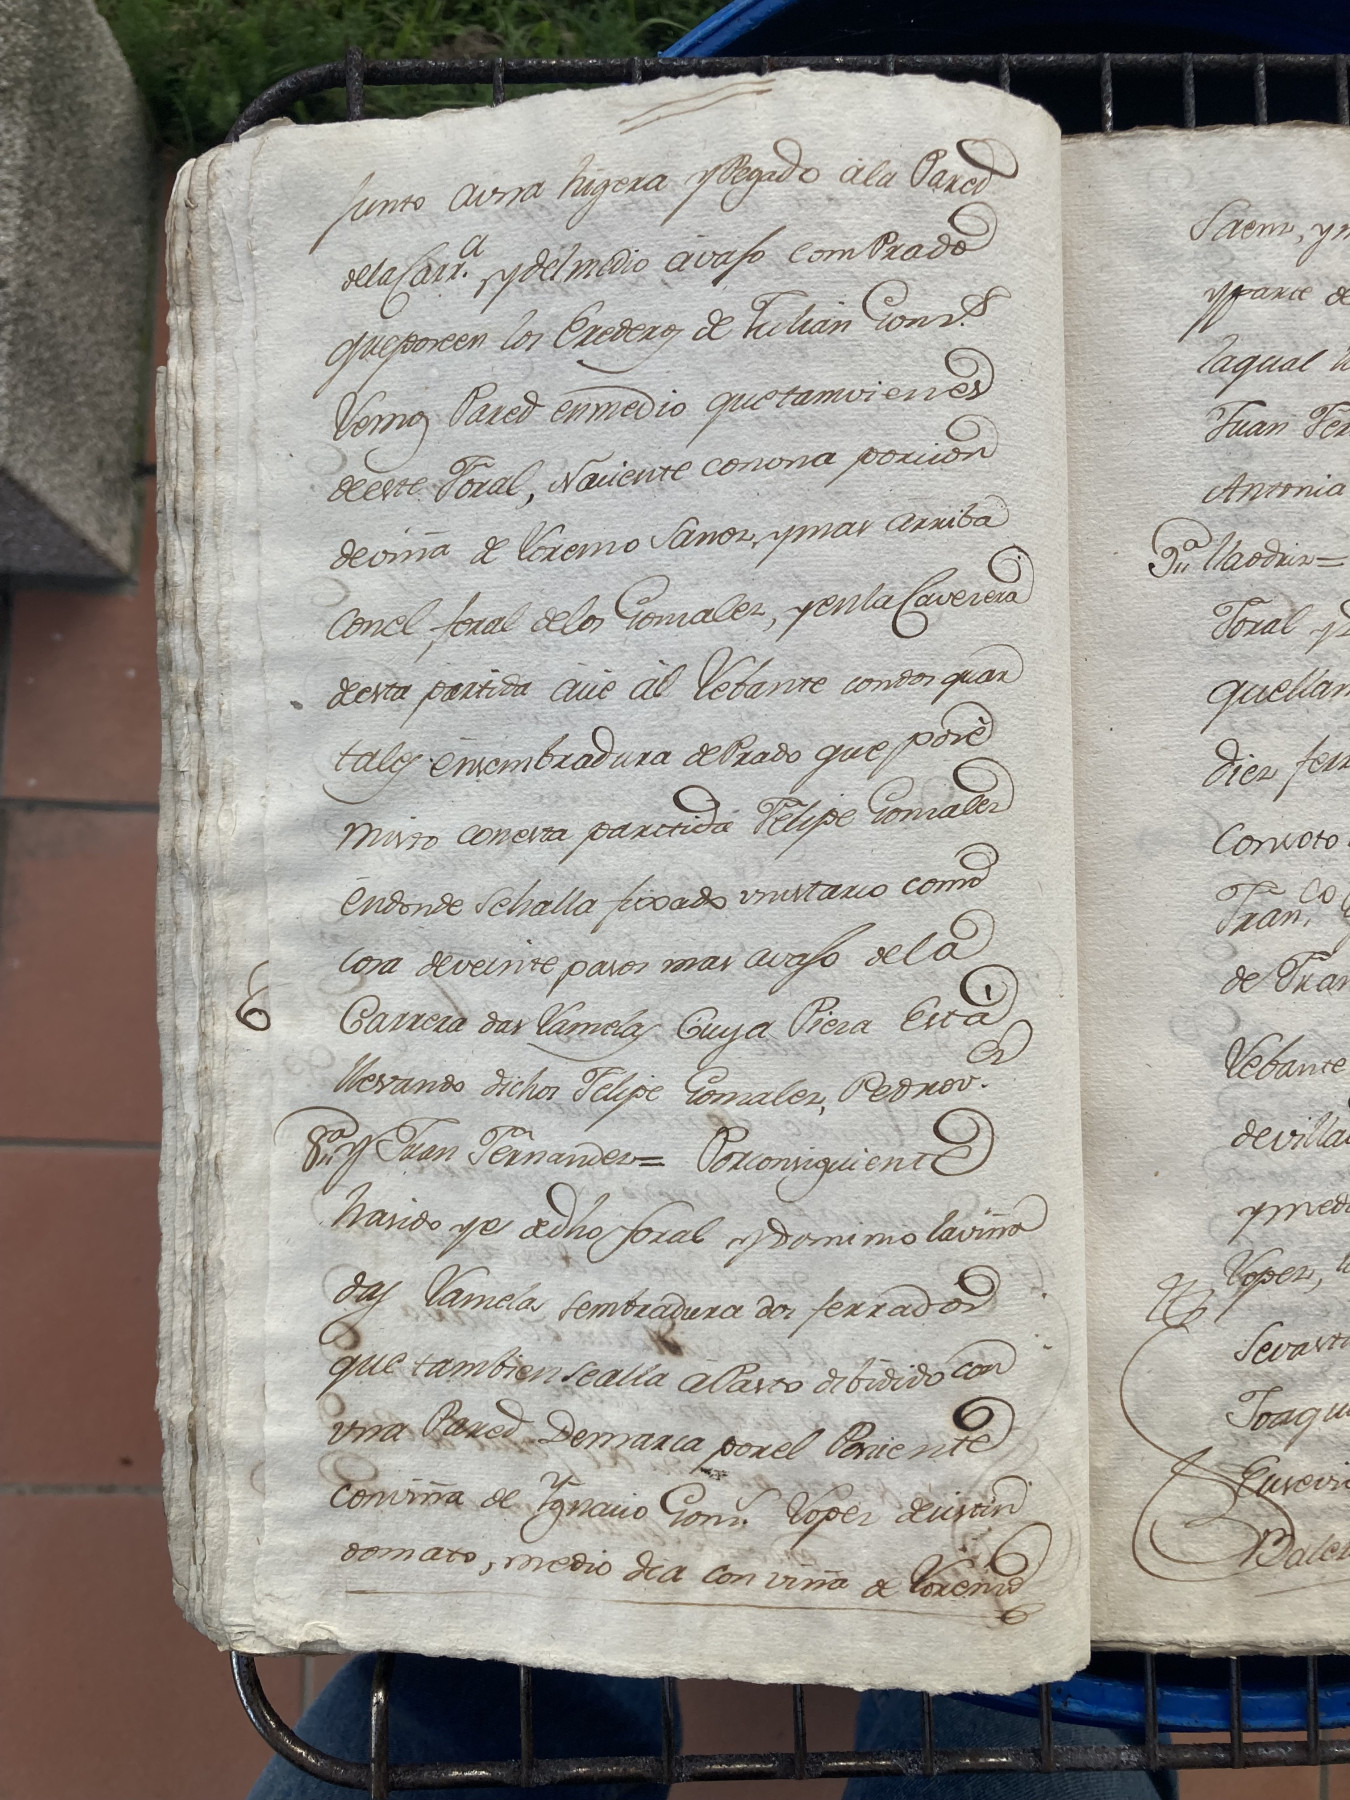 Junto auna higera y Pegado ala Pared
dela Carr.ª y del medio avajo com Prado
que poseen los Erederos de Julian Gonz.s
Vemos Pared enmedio que tamvien es
de este Foral, Naciente con una porcion
de viña de Lorenzo Sanez, y mas arriba
Con el foral de los Gonzalez, y en la Cavezera
de esta partida aúe ál Lebante con dos quar
tales ensembradura de Prado que posè
misto con esta partida Felipe Gonzalez
en donde se halla fixado un stario como
cosa de veinte pasos mas avajo de la
Carrera das Lamelas Cuya Pieza Està
llevando dichos Felipe Gonzalez, Pedro
8.ª y Juan Fernandez= Por consiguiente
ha sido y es de dho foral y dominio la viña
das Lamelas sembradura dos ferrados
que tambien se alla à Pasto dibidido con
una Pared Demarca por el Poniente
con viña de Ygnacio Gonz. Lopez de
donato, medio dia con viña de Lorenzo
6
Saenz, y
y parte de
la qual
Juan Fer
Antonia
9.ª Uaodriz=
Foral y
que llam
diez ferr
Con soto
Fran.co
de Fran
Lebante
de villa
y medi
Lopez,
Sevasti
Joaqui
Eusevi